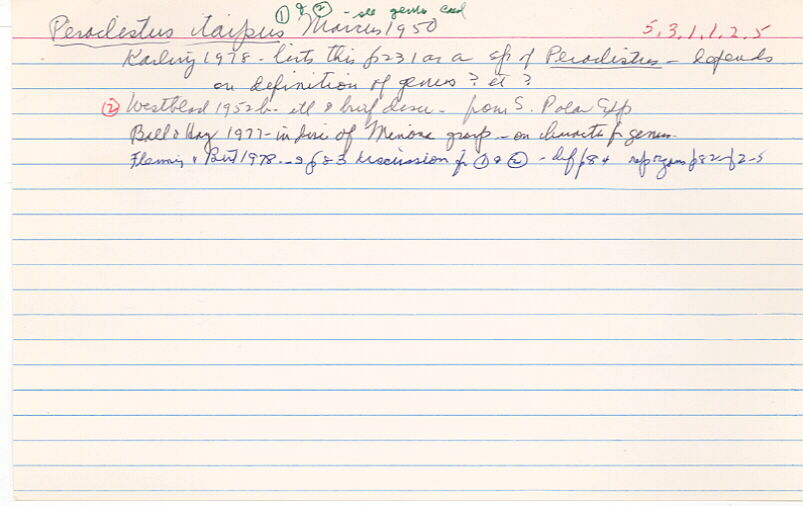 ① & ② - see genus card
Peraclistus itaipus Marcus 1950 5,3,1,1,2,5
Karling 1978 - lists this p231 as a sp of Peraclistus - depends
on definition of genus? et ?
② Westblad 1952b - ill & brief descr - from S. Polar Exp
Ball & Hay 1977 - in disc of Minona group - on characts for genus.
Fleming & 1978 - p83 discussion of ① & ② - diff p84 rep organs p82 f2-5